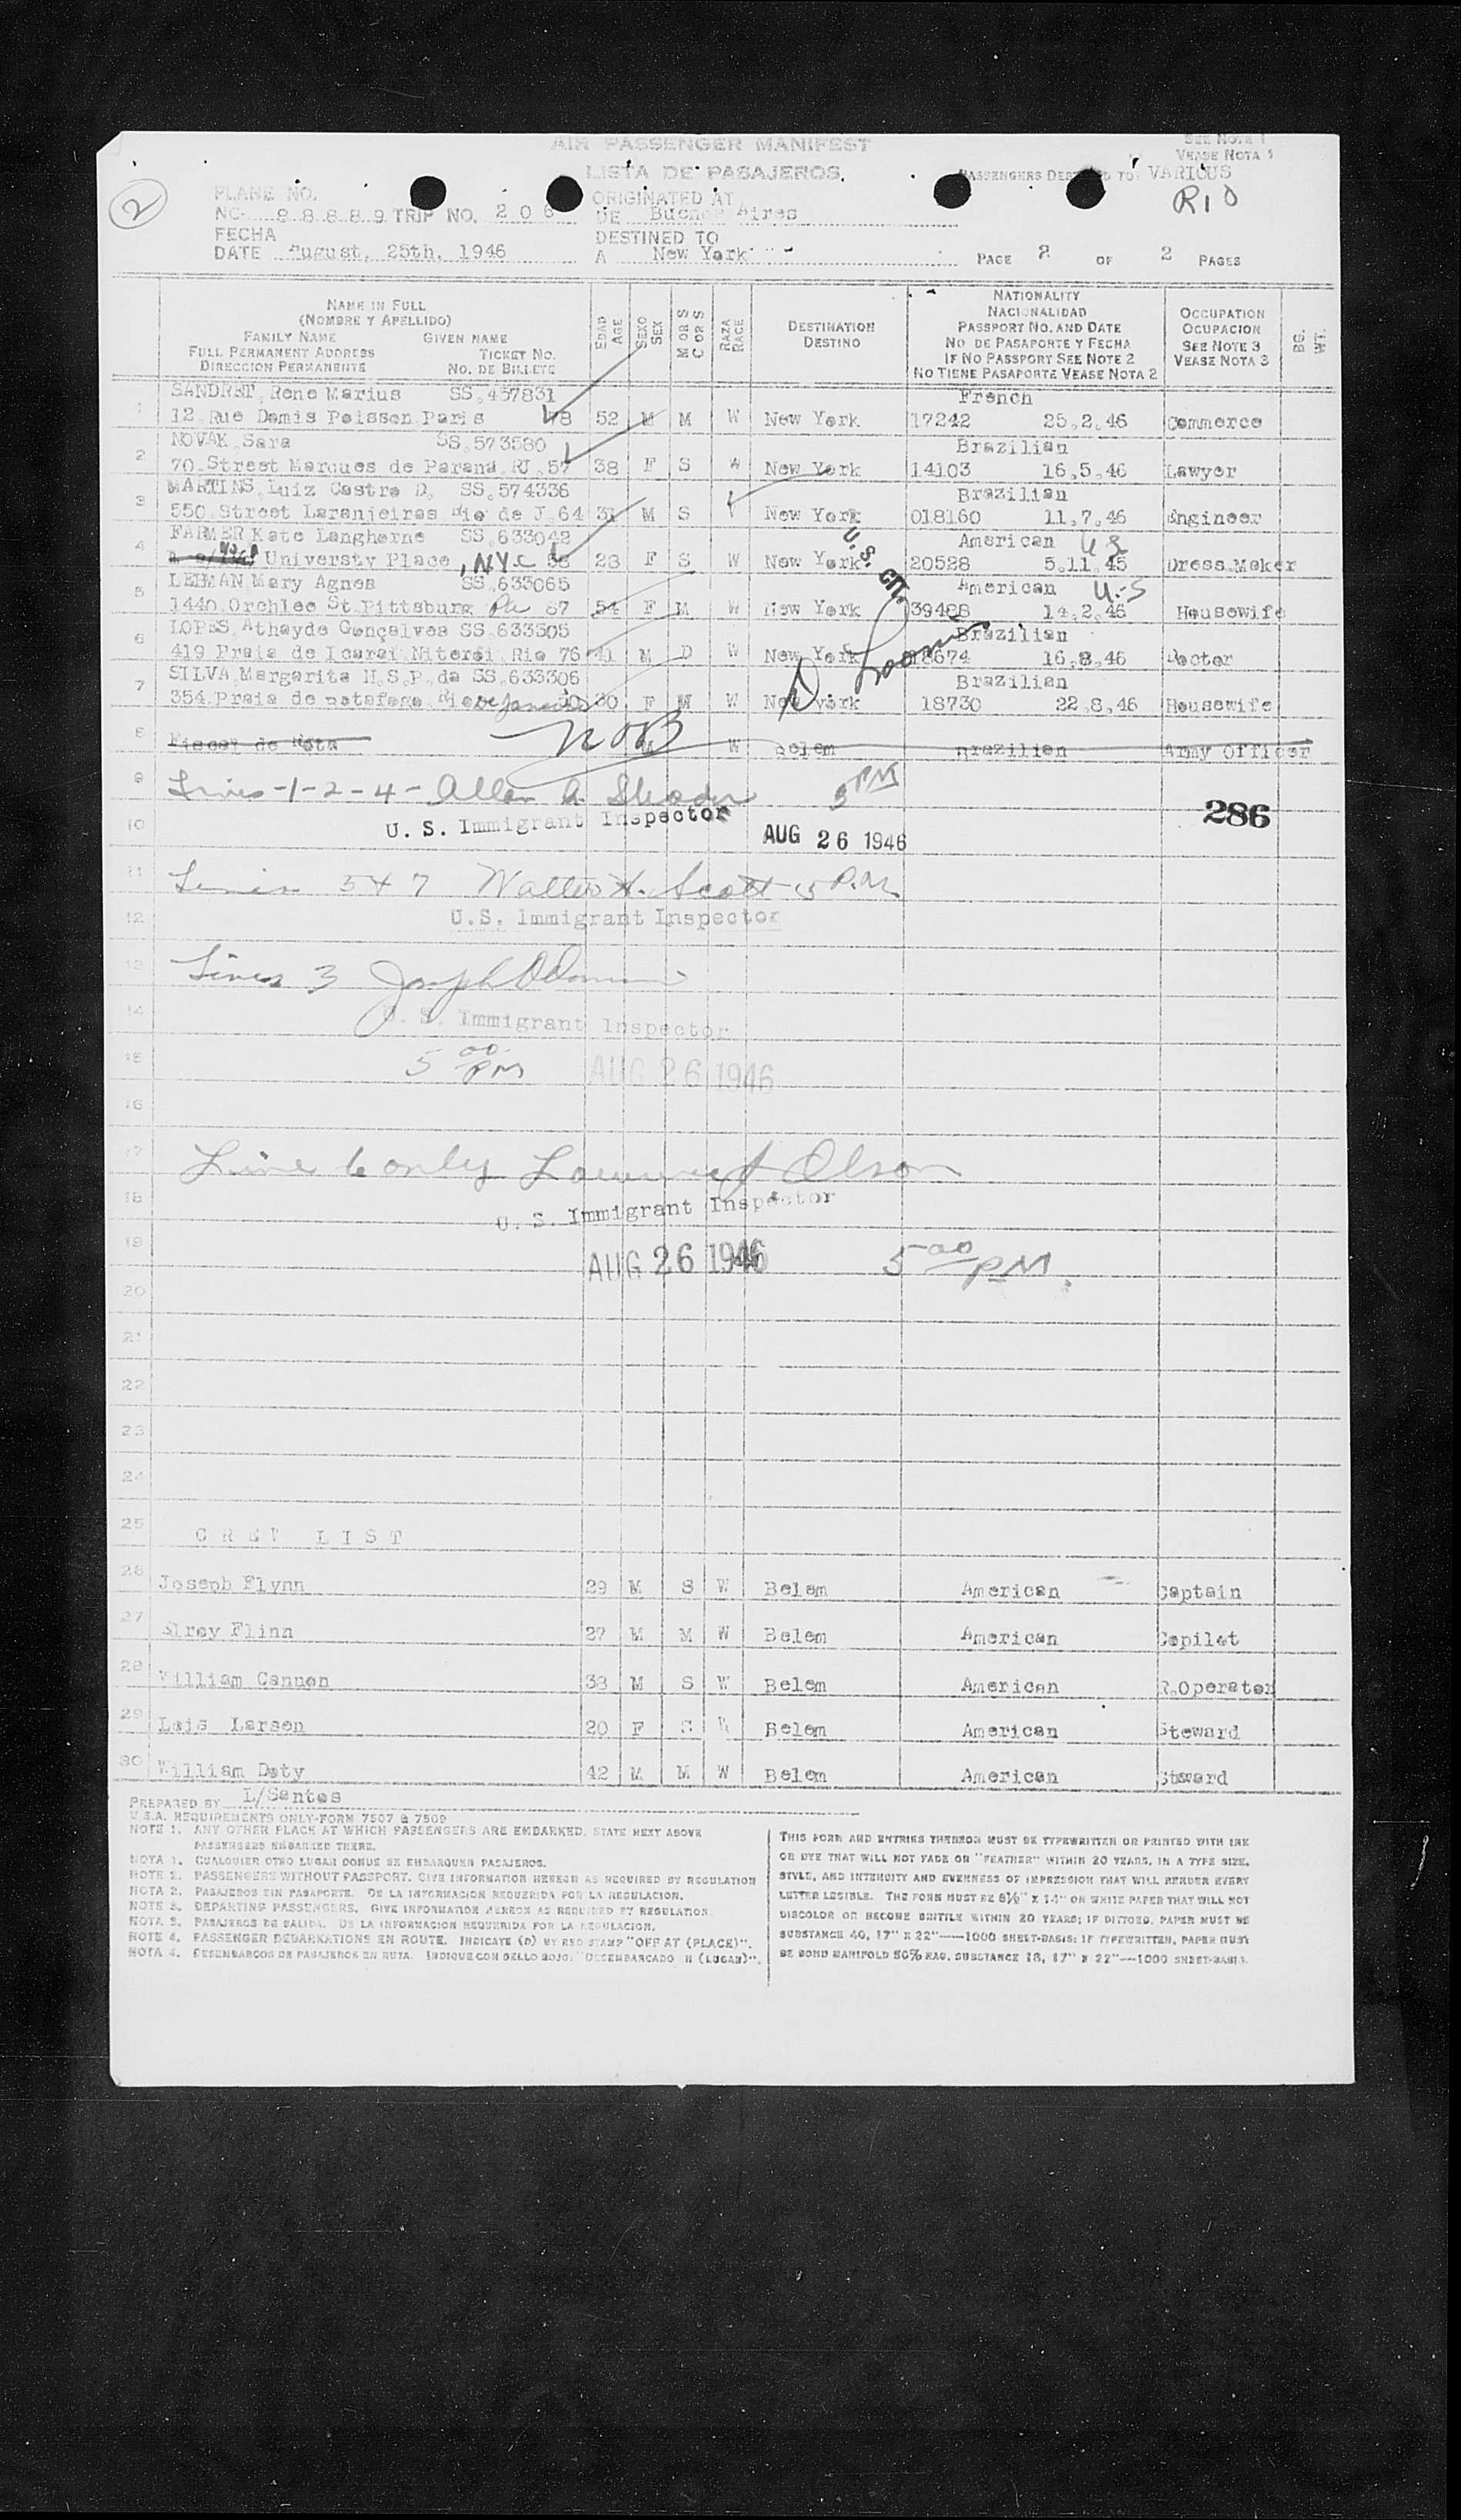 AIR PASSENGER MANIFEST
SEE NOTE 1
VEASE NOTA 1
LISTA DE PASAJEROS.
PASSENGERS DESTINED TO VARIOUS
2
RIO
PLANE NO.
NC- 88889 TRIP NO. 206
ORIGINATED AT
DE Buenos Aires
FECHA
DATE August, 25th, 1946
DESTINED TO
A New York
PAGE 2 OF 2 PAGES
NAME IN FULL
(NOMBRE Y APELLIDO)
FAMILY NAME GIVEN NAME
FULL PERMANENT ADDRESS TICKET NO.
DIRECCION PERMANENTE NO. DE BILLETE
EDAD AGE
SEXO SEX
M OR S C OR S
RAZA RACE
DESTINATION
DESTINO
NATIONALITY
NACIONALIDAD
PASSPORT NO. AND DATE
NO DE PASAPORTE Y FECHA
IF NO PASSPORT SEE NOTE 2
NO TIENE PASAPORTE VEASE NOTA 2
OCCUPATION
OCUPACION
SEE NOTE 3
VEASE NOTA 3
BG. WT.
1 SANDRET, Rene Marius SS.437831 French
12, Rue Damis Poisson Paris 78 52 M M W New York 17242 25.2.46 Commerce
2 NOVAK Sara SS.573580 Brazilian
70.Street Marques de Parana RJ.57 38 F S W New York 14103 16.5.46 Lawyer
3 MARTINS, Luiz Castro D. SS.574336 Brazilian
550.Street Laranjeiras Rio de J.64 31 M S New York 018160 11.7.46 Engineer
4 FARMER Kate Langhorne SS.633042 American US
Universty Place, NYC 58 28 F S W New York 20528 5.11.45 Dress Maker
U.S. CIT.
5 LEHMAN Mary Agnes SS.633065 American U.S
1440 Orchlee St.Pittsburg Pa 67 54 F M W New York 39488 14.2.46 Housewife
6 LOPES, Athayde Gonçalves SS.633305 Brazilian
419 Praia de Icarai Niteroi Rio 76 41 M D W New York 18674 16.8.46 Doctor
7 SILVA Margarita H.S.P.da SS.633306 Brazilian
354 Praia de Botafogo Rio de Janeiro 30 F M W New york 18730 22.8.46 Housewife
8 Fiscal de Rota NOB M W Belem Brazilian Army Officer
9 Lines -1-2-4- Allen A. 5 PM
10 U. S. Immigrant Inspector AUG 26 1946 286
11 Lines 5 & 7 Walter H. Scott 5 P.M.
12 U.S. Immigrant Inspector
13 Lines 3 Joseph
14 U. S. Immigrant Inspector
15 5 00 PM AUG 26 1946
16
17 Line 6 only Olson
18 U. S. Immigrant Inspector
19 AUG 26 1946 5 00 PM.
20
21
22
23
24
25 CREW LIST
26 Joseph Flynn 29 M S W Belem American Captain
27 Elroy Flinn 27 M M W Belem American Copilot
28 William Cannon 38 M S W Belem American R.Operator
29 Lois Larsen 20 F S W Belem American Steward
30 William Doty 42 M M W Belem American Steward
PREPARED BY L/Santos
U.S.A. REQUIREMENTS ONLY-FORM 7507 & 7509
NOTE 1. ANY OTHER PLACE AT WHICH PASSENGERS ARE EMBARKED, STATE NEXT ABOVE
PASSENGERS EMBARKED THERE.
NOTA 1. CUALQUIER OTRO LUGAR DONDE SE EMBARQUEN PASAJEROS.
NOTE 2. PASSENGERS WITHOUT PASSPORT. GIVE INFORMATION HEREON AS REQUIRED BY REGULATION
NOTA 2. PASAJEROS SIN PASAPORTE. DE LA INFORMACION REQUERIDA POR LA REGULACION.
NOTE 3. DEPARTING PASSENGERS. GIVE INFORMATION HEREON AS REQUIRED BY REGULATION.
NOTA 3. PASAJEROS DE SALIDA. DE LA INFORMACION REQUERIDA POR LA REGULACION.
NOTE 4. PASSENGER DEBARKATIONS EN ROUTE. INDICATE (D) BY RED STAMP "OFF AT (PLACE)".
NOTA 4. DESEMBARCOS DE PASAJEROS EN RUTA. INDIQUE CON SELLO ROJO: "DESEMBARCADO EN (LUGAR)".
THIS FORM AND ENTRIES THEREON MUST BE TYPEWRITTEN OR PRINTED WITH INK
OR DYE THAT WILL NOT FADE OR "FEATHER" WITHIN 20 YEARS, IN A TYPE SIZE,
STYLE, AND INTENSITY AND EVENNESS OF IMPRESSION THAT WILL RENDER EVERY
LETTER LEGIBLE. THE FORM MUST BE 8½" X 14" ON WHITE PAPER THAT WILL NOT
DISCOLOR OR BECOME BRITTLE WITHIN 20 YEARS; IF DITTOED, PAPER MUST BE
SUBSTANCE 40, 17" X 22"—1000 SHEET-BASIS; IF TYPEWRITTEN, PAPER MUST
BE BOND MANIFOLD 50% RAG, SUBSTANCE 18, 17" X 22"—1000 SHEET-BASIS.